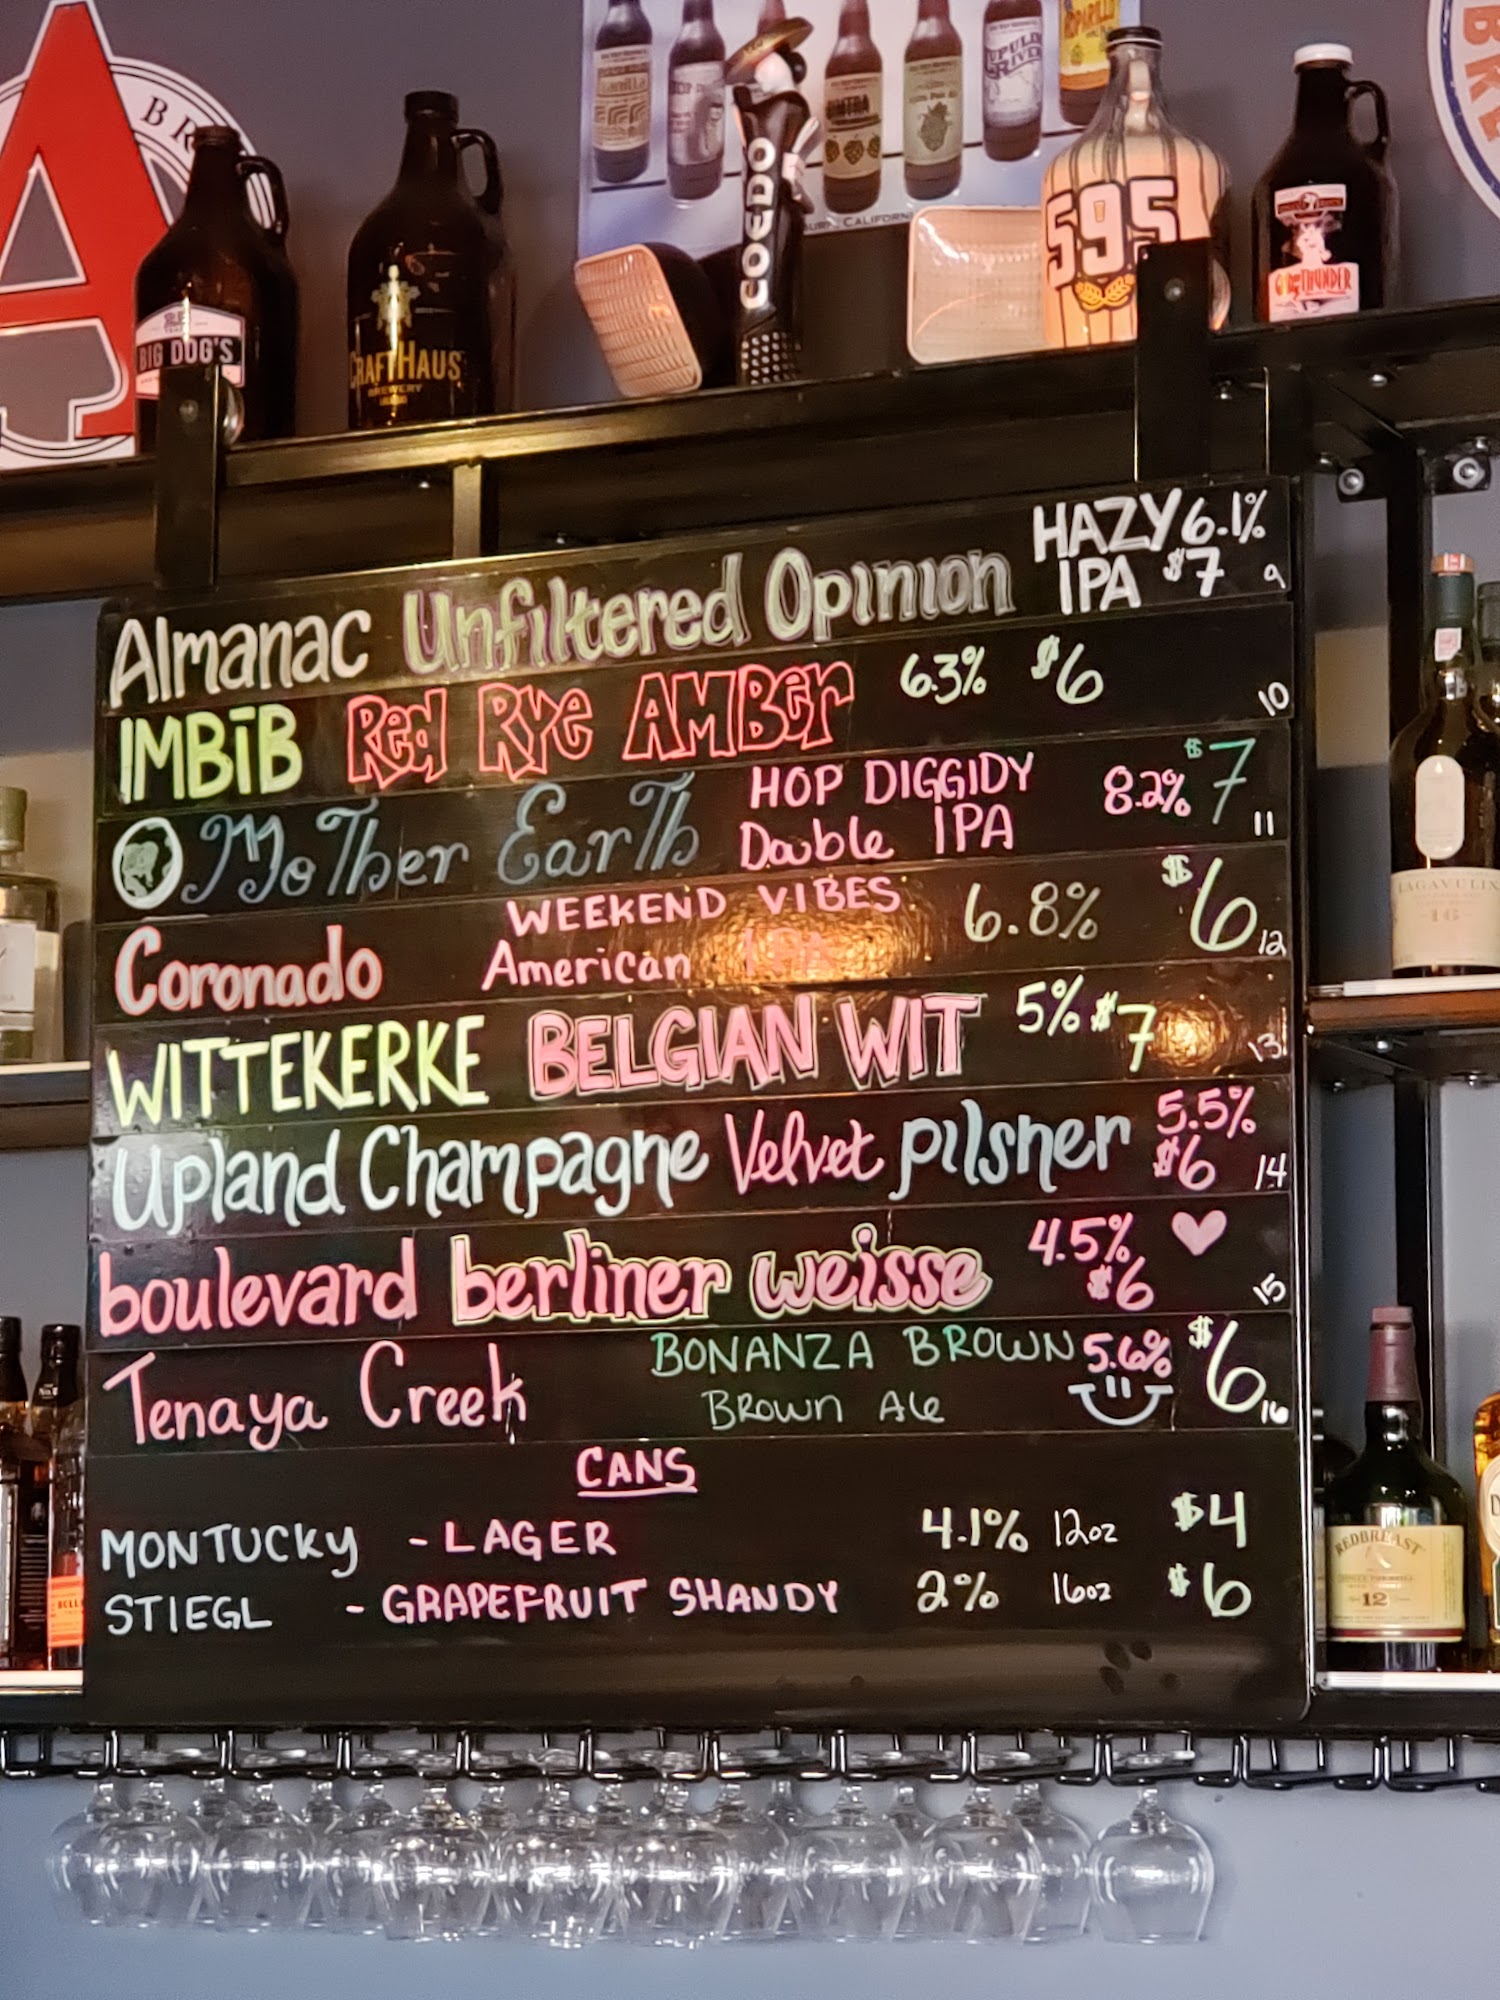 BR
BRE
vanilla
HOP
LUPULIN
RIVER
HOPARILLO
COEDO
CALIFORNIA
595
BIG DOG'S
CRAFTHAUS
BREWERY
THUNDER
Almanac Unfiltered Opinion HAZY IPA 6.1% $7 9
IMBIB Red Rye AMBer 6.3% $6 10
Mother Earth HOP DIGGIDY 8.2% $7 11
Double IPA
Coronado WEEKEND VIBES 6.8% $6 12
American IPA
WITTEKERKE BELGIAN WIT 5% $7 13
Upland Champagne Velvet pilsner 5.5% $6 14
boulevard berliner weisse 4.5% $6 15
Tenaya Creek BONANZA BROWN 5.6% $6 16
Brown Ale
CANS
MONTUCKY - LAGER 4.1% 12oz $4
STIEGL - GRAPEFRUIT SHANDY 2% 16oz $6
LAGAVULIN
16
REDBREAST
12